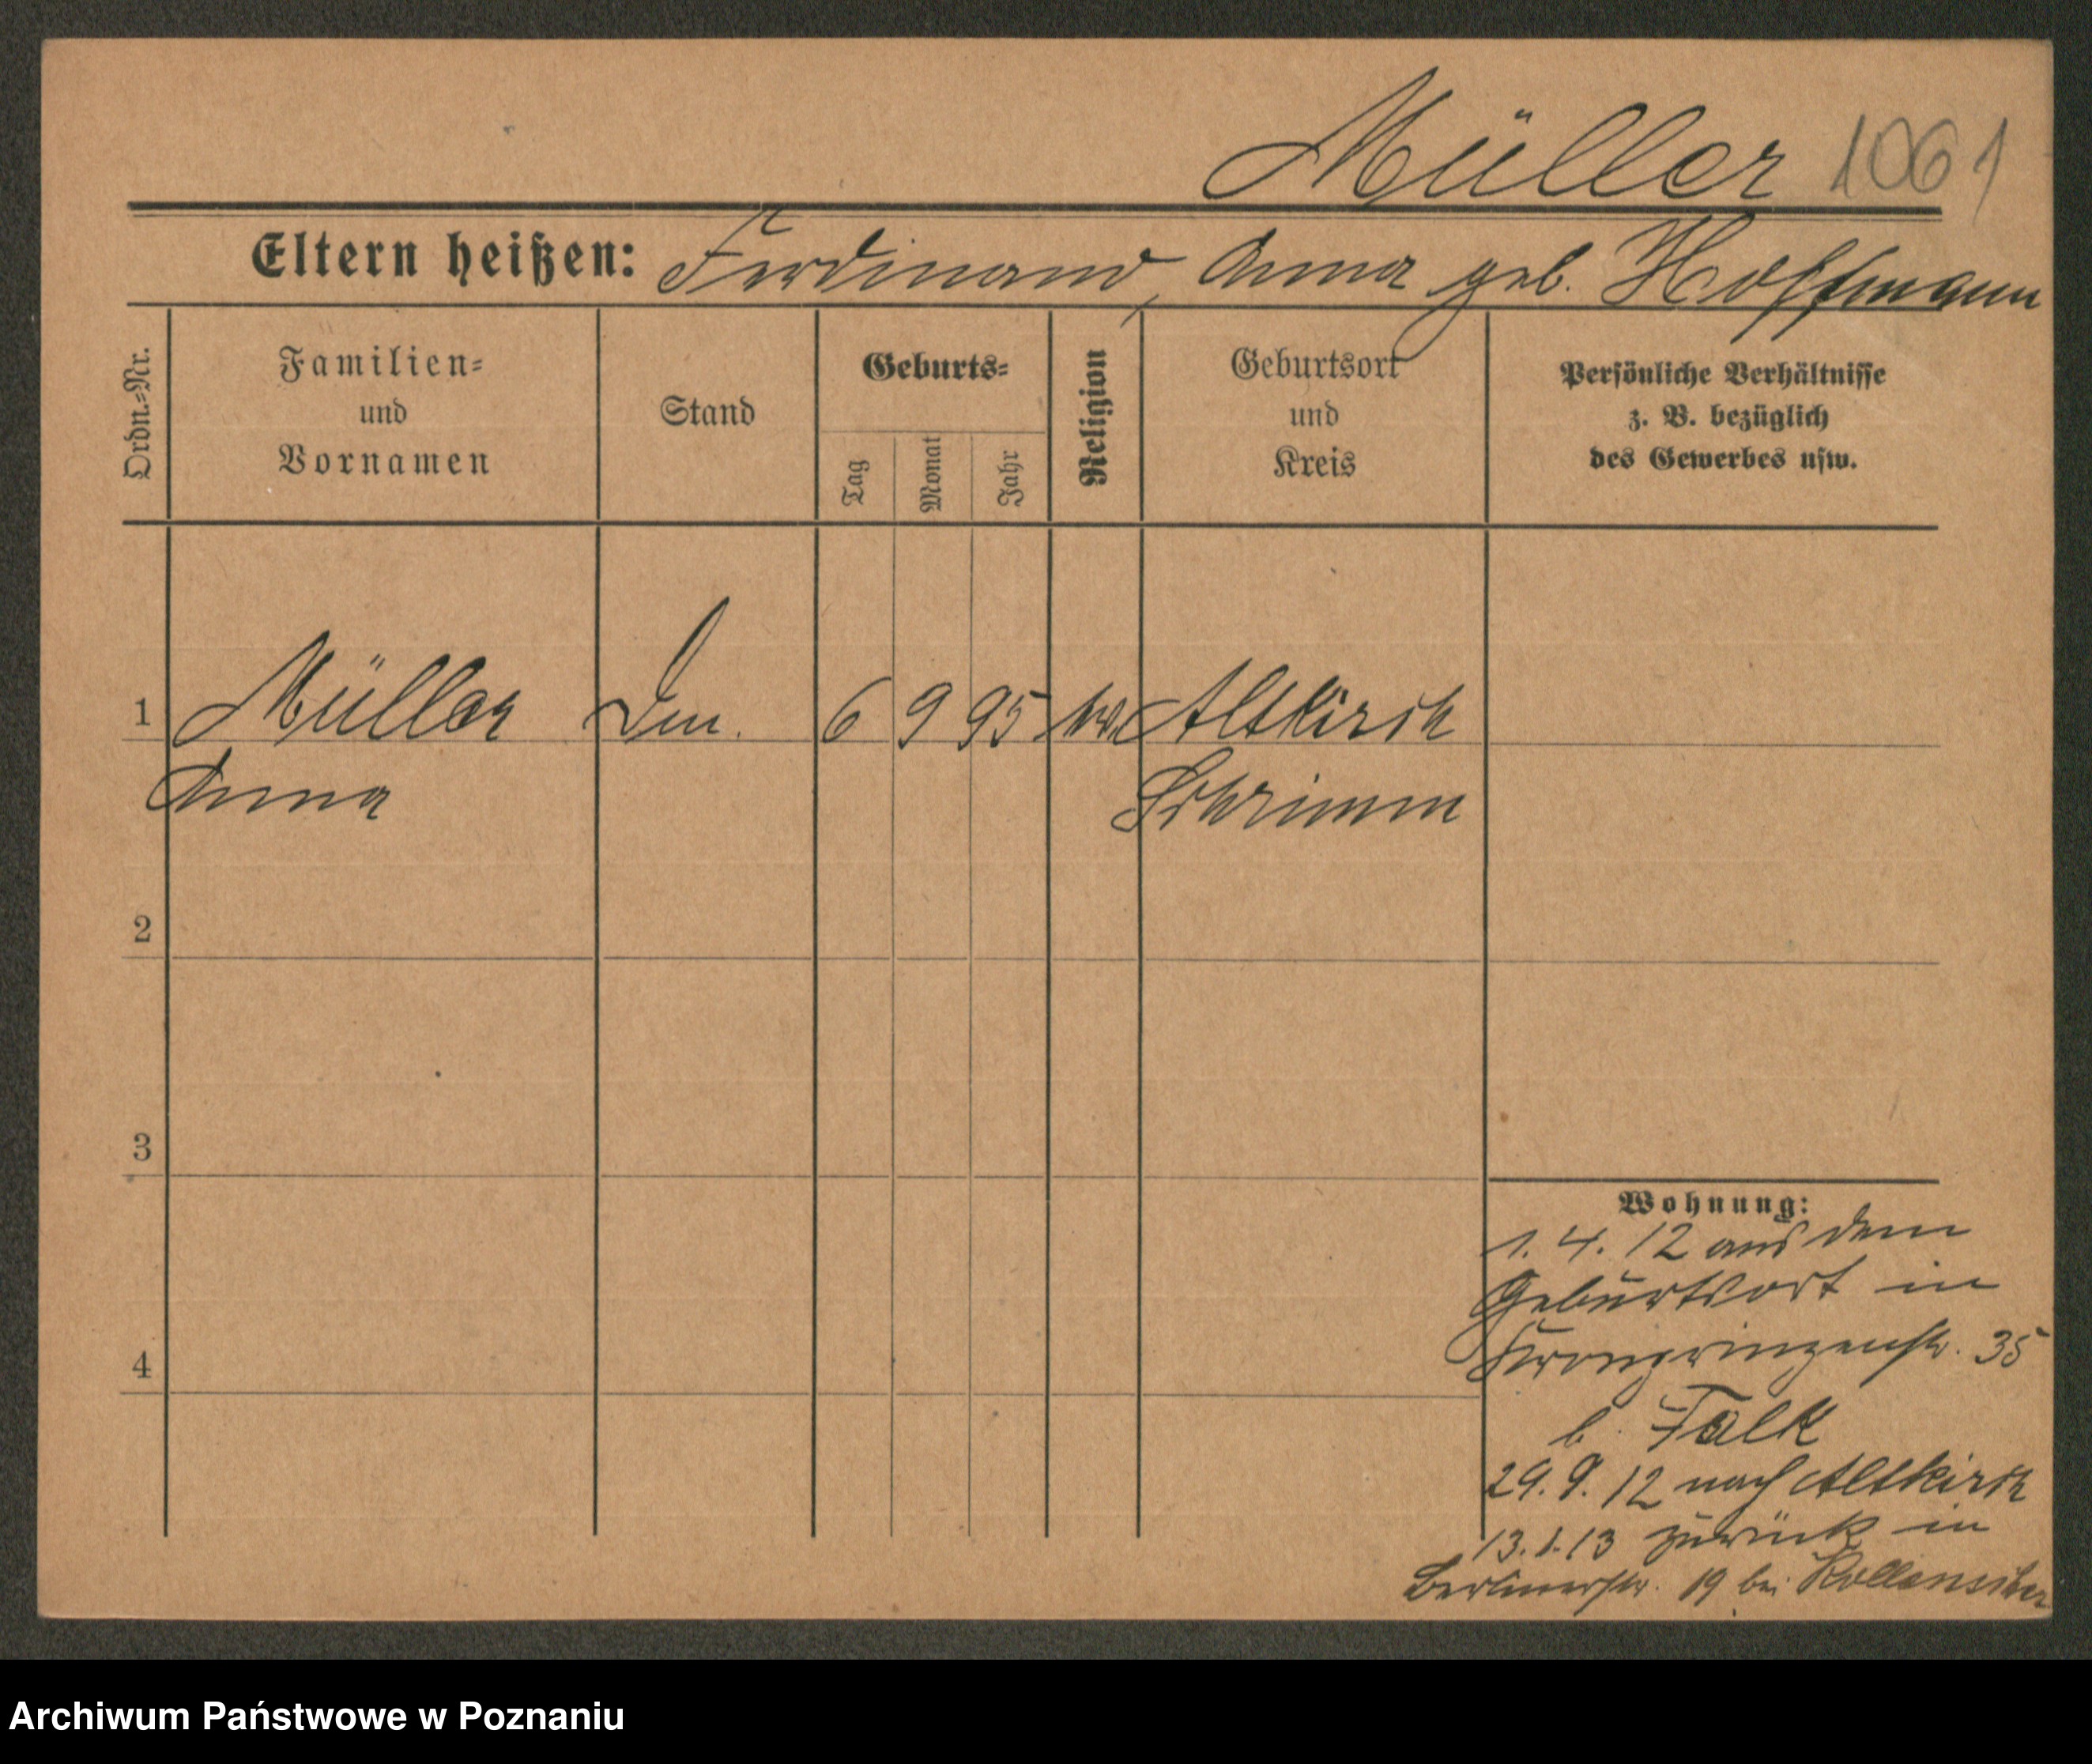 Müller 1061
Eltern heißen: Ferdinand, Anna geb. Hoffmann
Ordn.-Nr.
Familien-
und
Vornamen
Stand
Geburts-
Tag
Monat
Jahr
Religion
Geburtsort
und
Kreis
Persönliche Verhältnisse
z. B. bezüglich
des Gewerbes usw.
1 Müller 6 9 95 Altkirch
Anna Schrimm
2
3
4
Wohnung:
1. 4. 12 aus dem
Geburtsort in
Kronprinzenstr. 35
b. Falk
29. 9. 12 nach Altkirch
13. 1. 13 zurück in
Berlinerstr. 19 bei
Archiwum Państwowe w Poznaniu